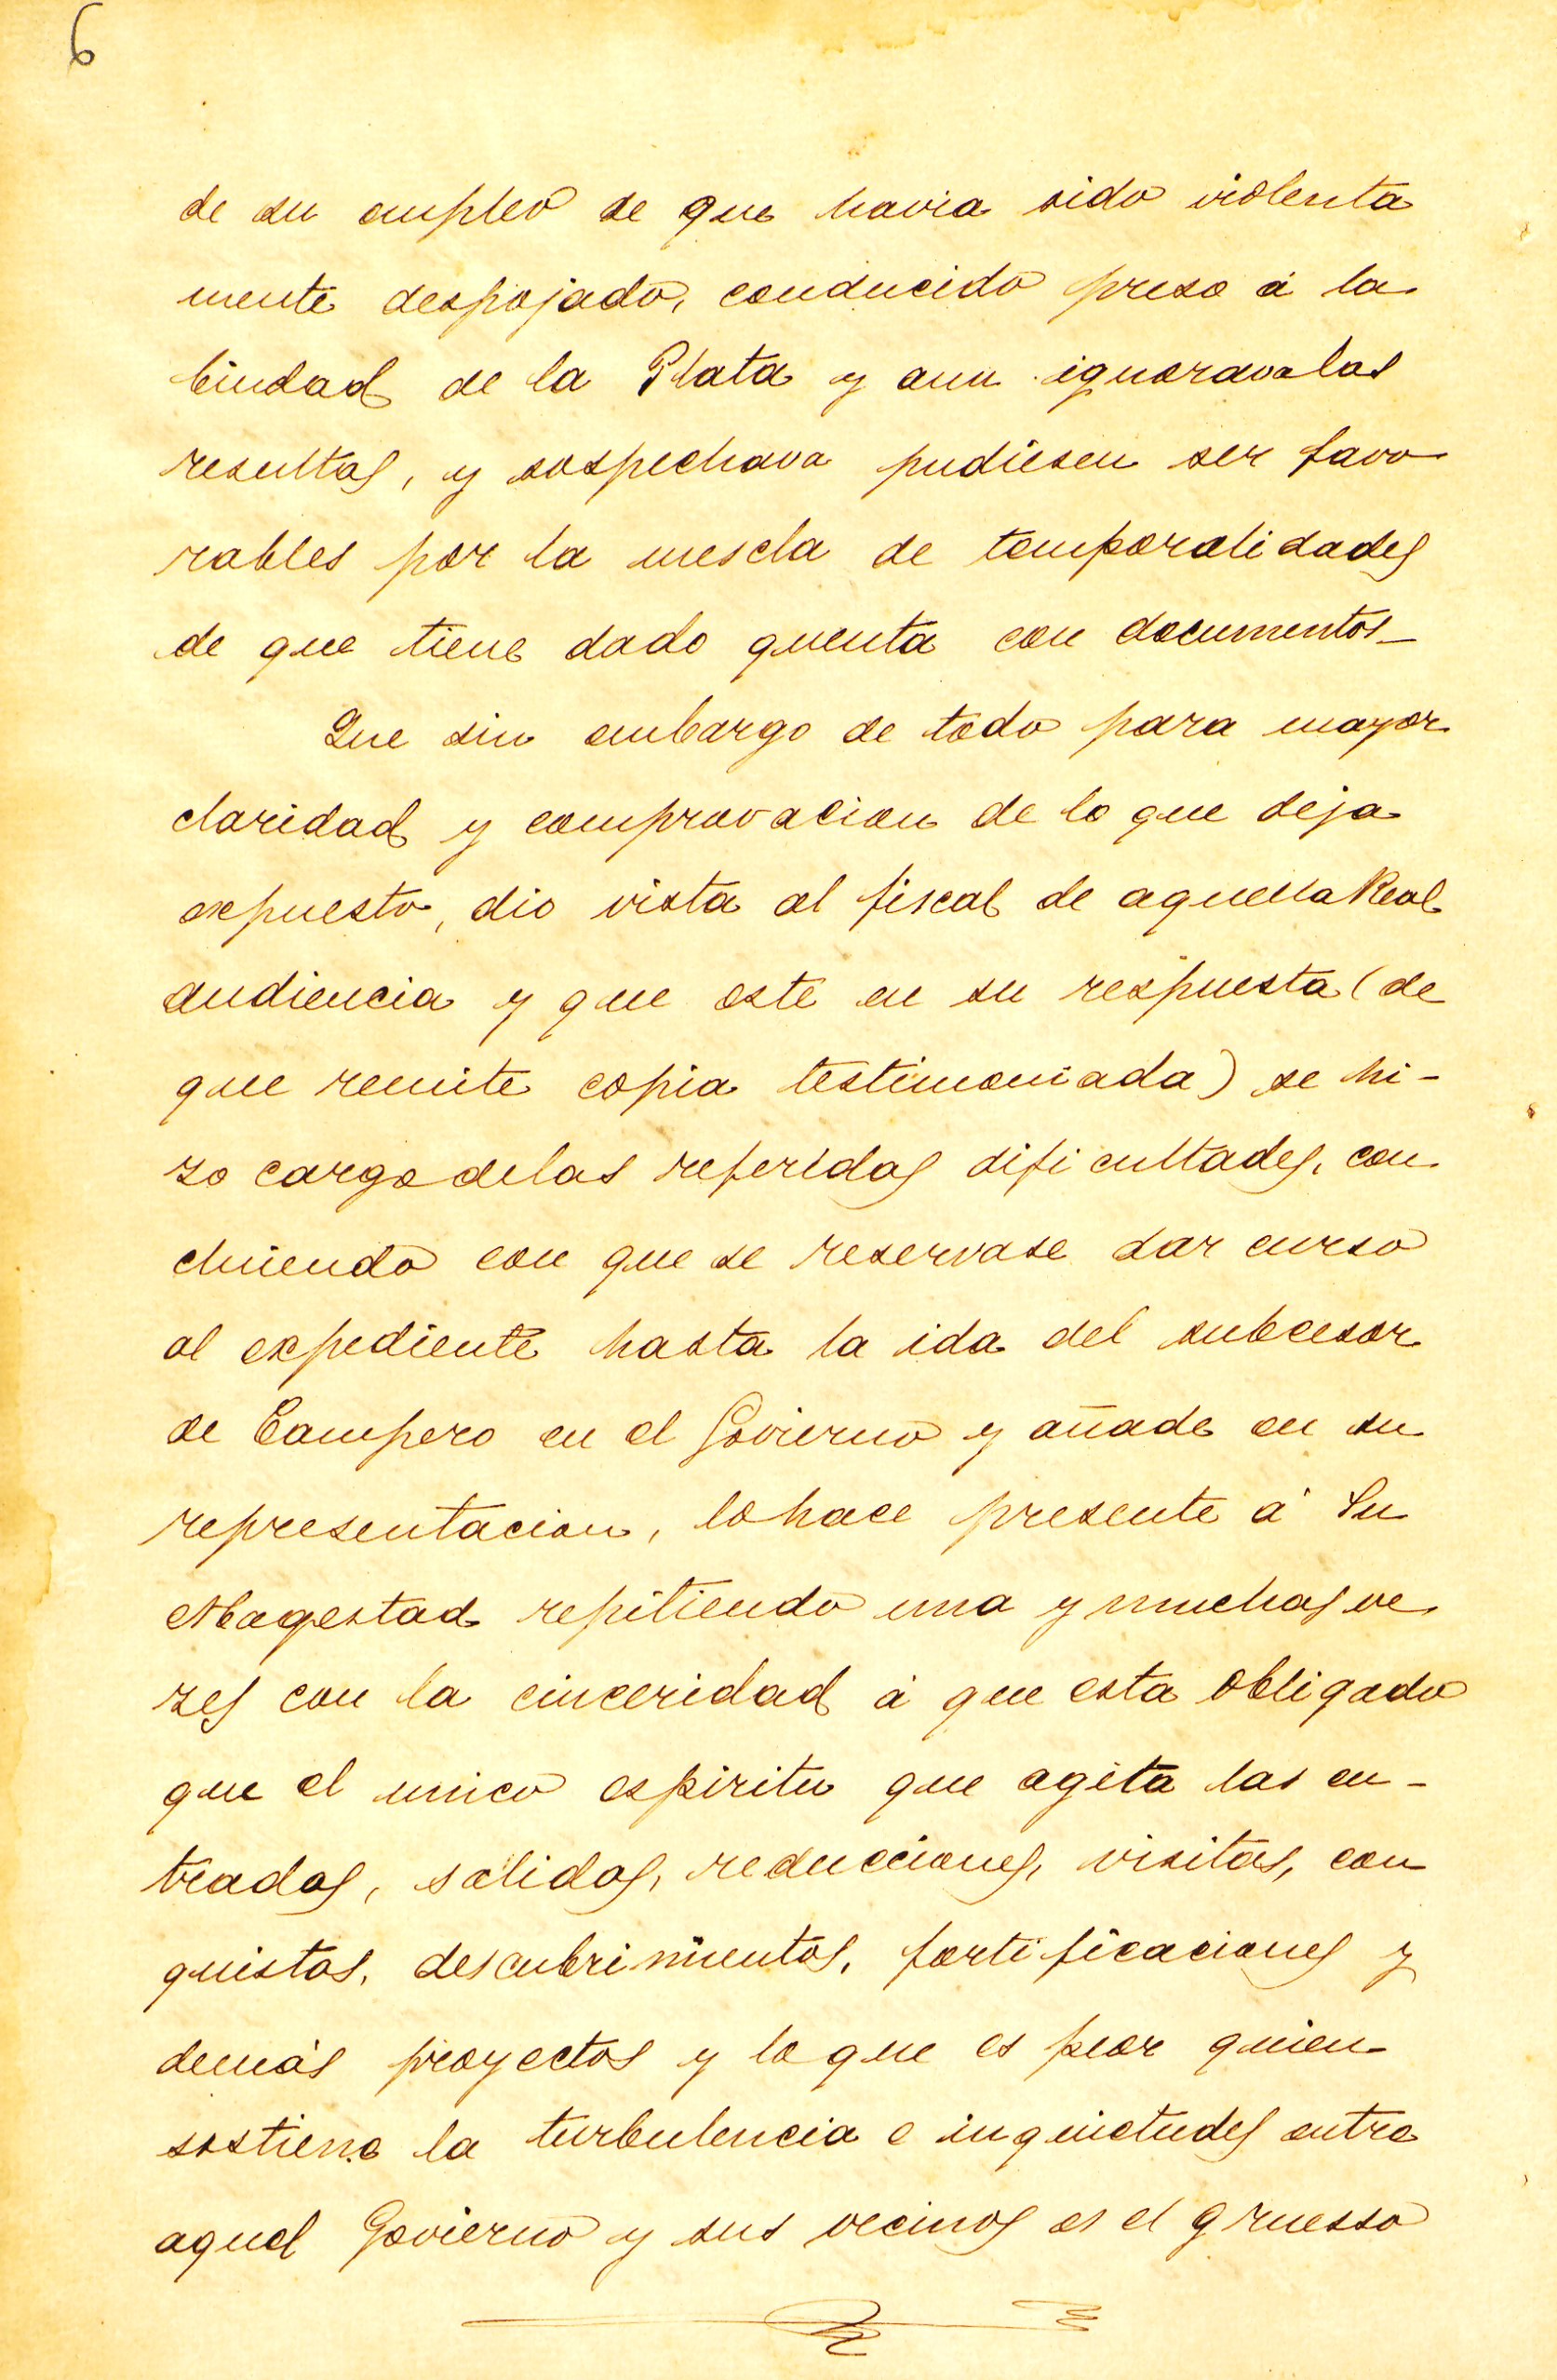 6
de su empleo de que havia sido violenta
mente despojado, conducido preso á la
Ciudad de la Plata y aun ignorava las
resultas, y sospechava pudiesen ser favo
rables por la mescla de temporalidades
de que tiene dado quenta con documentos_
Que sin embargo de todo para mayor
claridad y comprovacion de lo que deja
expuesto, dio vista al fiscal de aquella Real
audiencia y que este en su respuesta (de
que remite copia testimoniada) se hi-
zo cargo de las referidas dificultades, con
cluiendo con que se reservase dar curso
al expediente hasta la ida del subcesor
de Campero en el Govierno y añade en su
representacion, lo hace presente á Su
Magestad repitiendo una y muchas ve
zes con la cinceridad á que esta obligado
que el unico espiritu que agita las en-
tradas, salidas, reducciones, visitas, con
quistas, descubrimientos, fortificaciones y
demás proyectos y lo que es peor quien
sostiene la turbulencia e inquietudes entre
aquel Govierno y sus vecinos es el gruesso